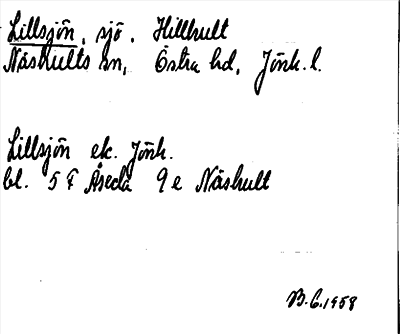 Lillsjön, sjö. Hillhult
Näshults sn, Östra hd, Jönk. l.
Lillsjön ek. Jönk.
bl. 5 F Åseda 9 e Näshult
B.G. 1958